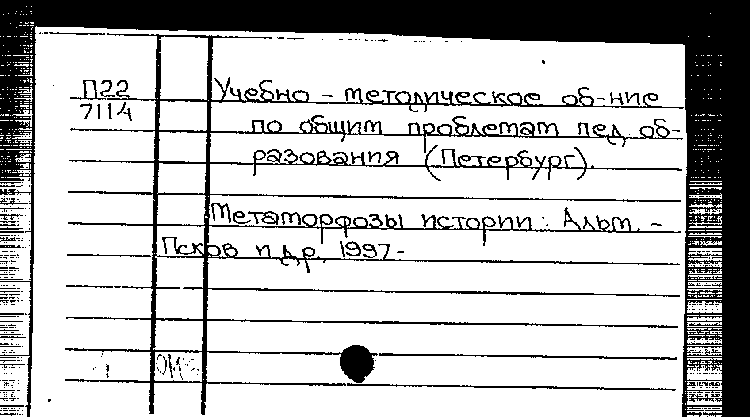 П22
7114
Учебно-методическое об-ние
по общим проблемам пед. об-
разования (Петербург).
Метаморфозы истории: Альм. -
Псков и др., 1997-